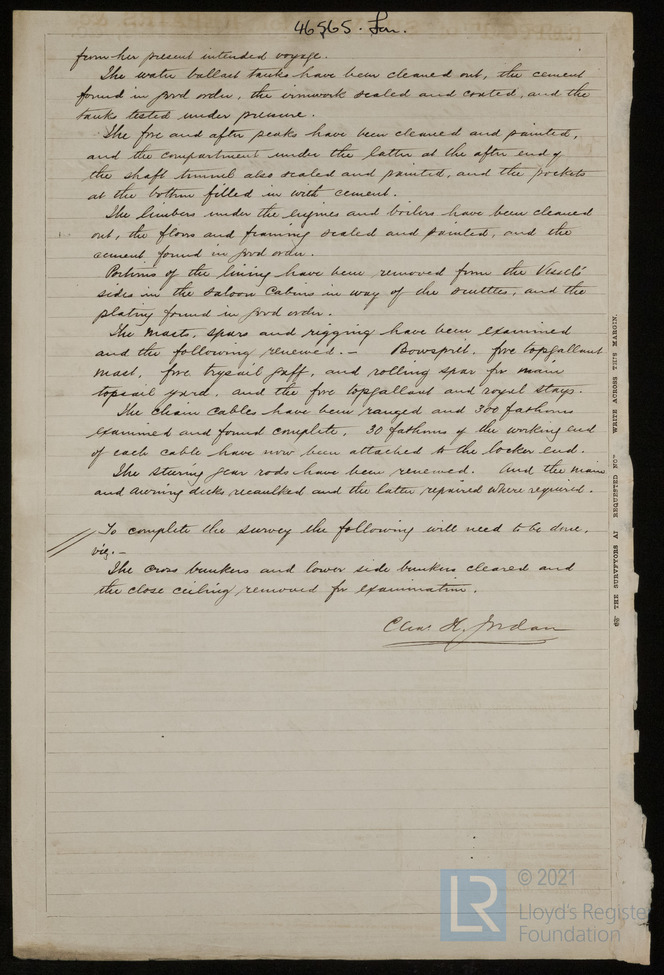 46565. Lon.
from her present intended voyage.
The water ballast tanks have been cleaned out, the cement
found in good order, the ironwork scaled and coated, and the
tanks tested under pressure.
The fore and after peaks have been cleaned and painted,
and the compartment under the latter at the after end of
the shaft tunnel also scaled and painted, and the pockets
at the bottom filled in with cement.
The limbers under the engines and boilers have been cleaned
out, the floors and framing scaled and painted, and the
cement found in good order.
Portions of the lining have been removed from the Vessels'
sides in the saloon Cabins in way of the scuttles, and the
plating found in good order.
The Masts, spars and rigging have been examined
and the following renewed. — Bowsprit, fore topgallant
mast, fore trysail gaff, and rolling spar for main
topsail yard, and the fore topgallant and royal stays.
The chain cables have been ranged and 300 fathoms
examined and found complete, 30 fathoms of the working end
of each cable have now been attached to the locker end.
The steering gear rods have been renewed. And the main
and awning decks recaulked and the latter repaired where required.
To complete the survey the following will need to be done,
viz. —
The cross bunkers and lower side bunkers cleared and
the close ceiling removed for examination.
Chas. H. Jordan
THE SURVEYORS ARE REQUESTED NOT WRITE ACROSS THIS MARGIN.
LR
© 2021
Lloyd's Register
Foundation